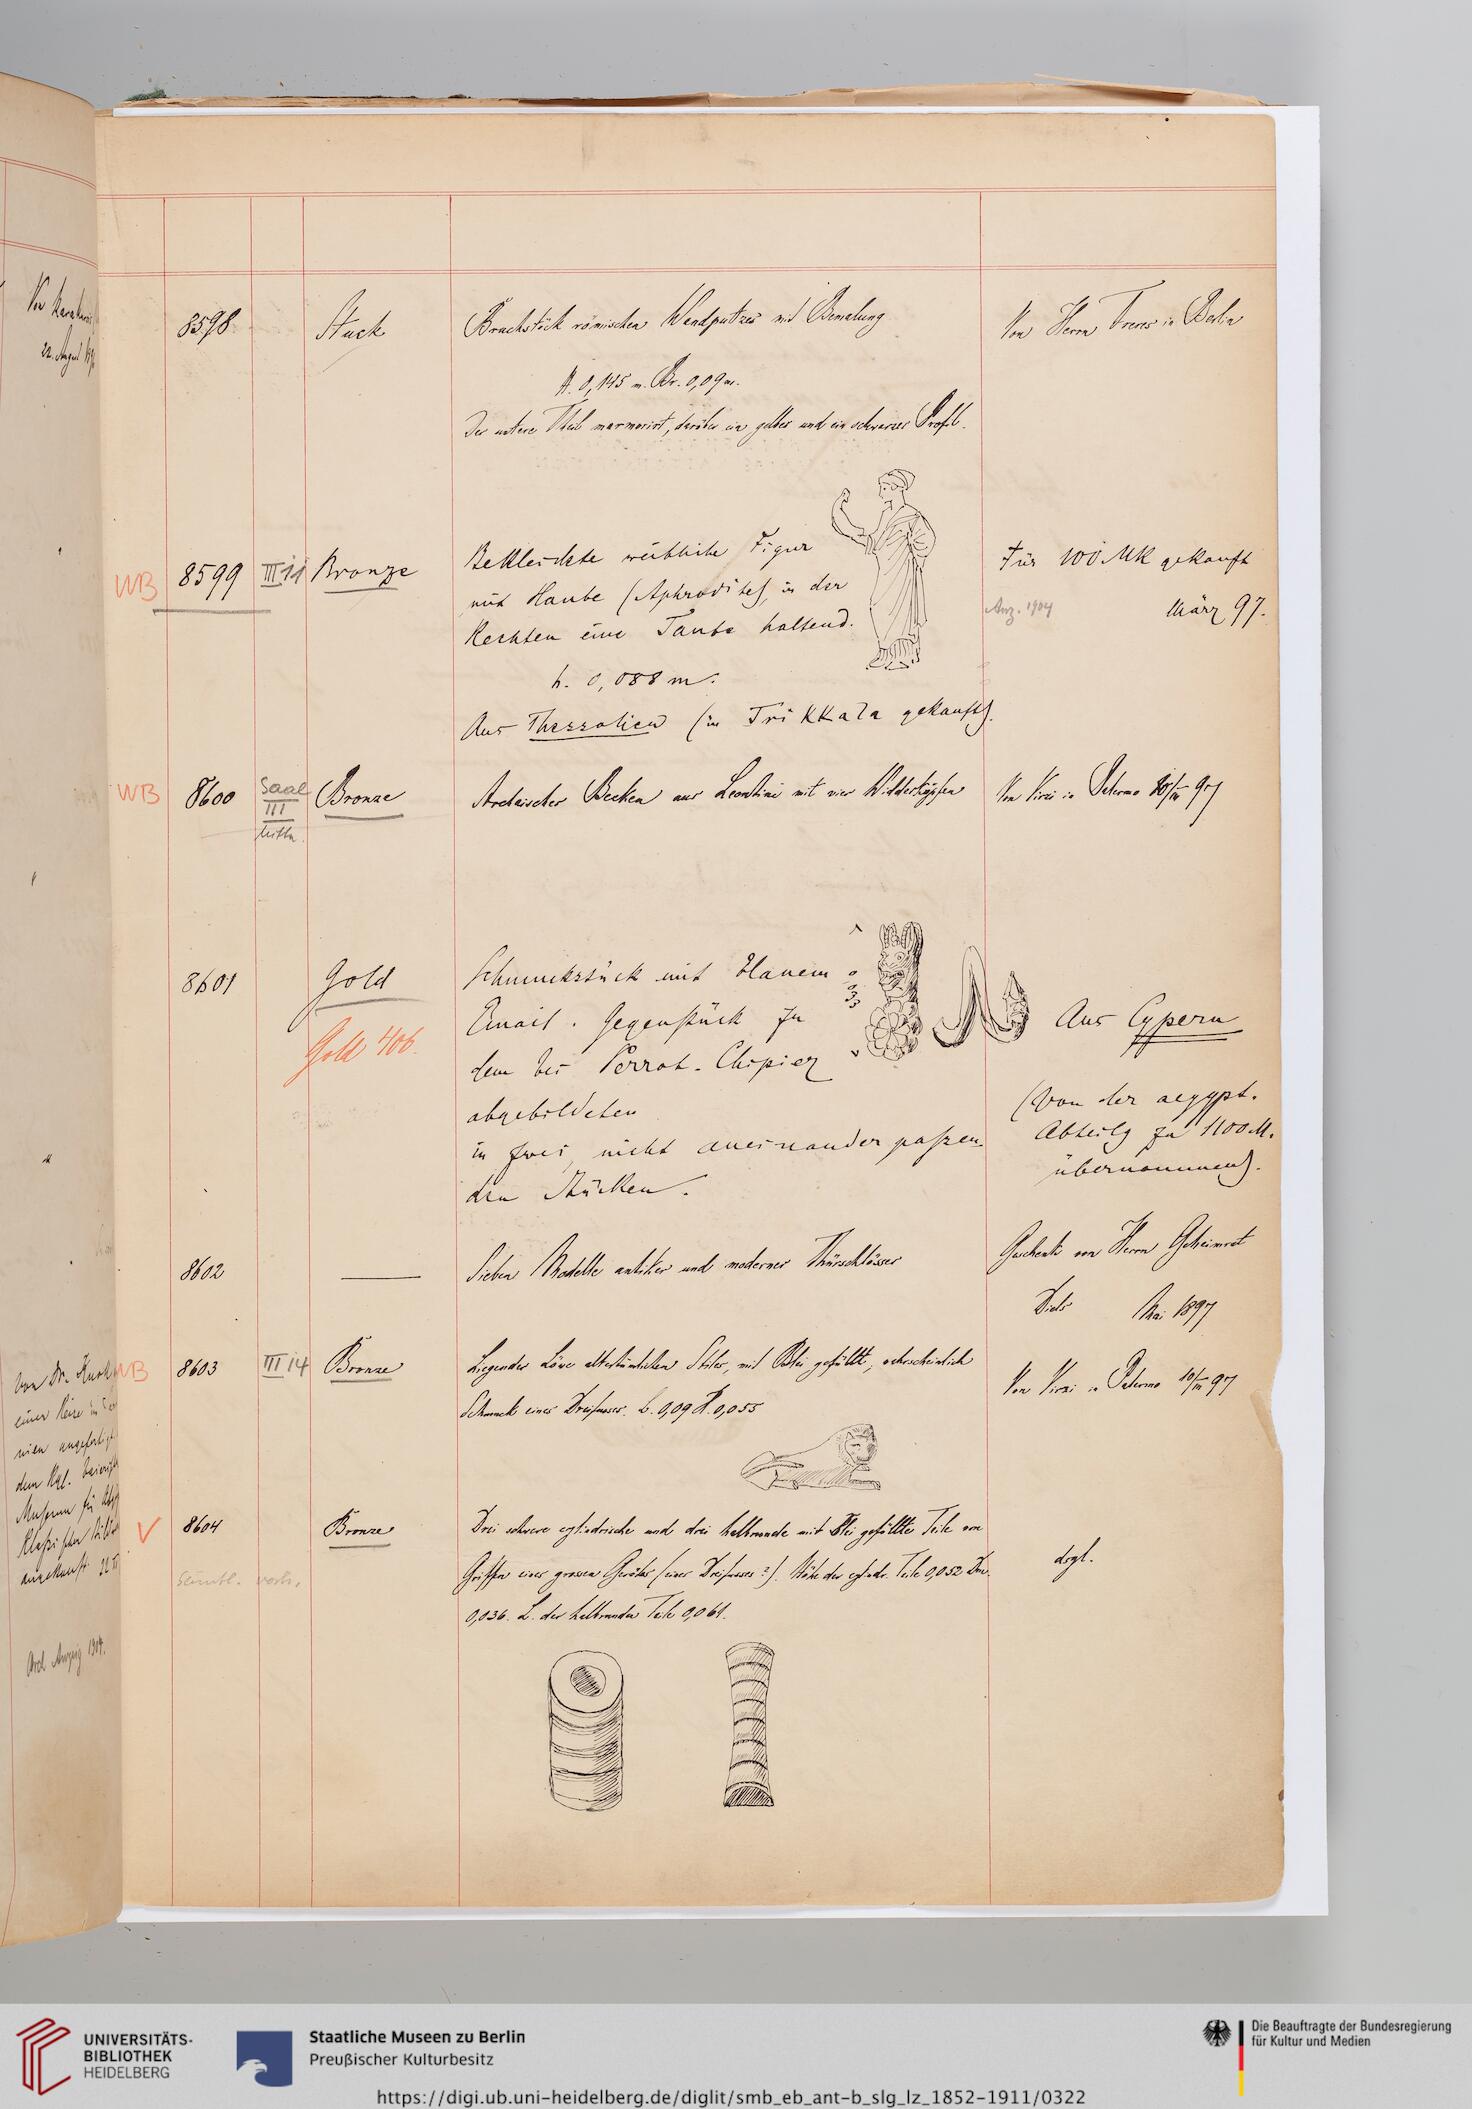 8598. Stuck Bruchstück römischen Wandputzes mit Bemalung Von Herrn Freres in Berlin
H. 0,145 m. Br. 0,09 m.
Der untere Theil marmorirt, darüber ein gelbes und ein schwarzes Profil.
WB 8599 III 11 Bronze Bekleidete weibliche Figur Für 100 MK gekauft
mit Haube (Aphrodite), in der Anz. 1904 März 97.
Rechten eine Taube haltend.
h. 0,088 m.
Aus Thessalien (in Trikkala gekauft).
WB 8600 Saal III Bronze Archaischer Becken aus Leontini mit vier Widderköpfen Von Virzi in Palermo 97
8601 Gold Schmuckstück mit blauem
Gold 406. Email. Gegenstück zu Aus Cypern
dem bei Perrot-Chipiez
abgebildeten (Von der aegypt.
in zwei, nicht aneinander paßen- Abteilg zu 1100 M.
den Stücken. übernommen).
8602 — Sieben Modelle antiker und moderner Thürschlösser Geschenk von Herrn Geheimrat
Diels Mai 1897
WB 8603 III 14 Bronze Liegender Löwe altertümlichen Stiles, mit Blei gefüllt, wahrscheinlich Von Virzi in Palermo 97
Schmuck eines Dreifusses. L. 0,09 H. 0,055
V 8604 Bronze Drei schwere cylindrische und drei halbrunde mit Blei gefüllte Teile von
sämtl. vorh. Griffen eines grossen Geräths (eines Dreifusses?). Höhe der cylindr. Teile 0,052 Dm. dsgl.
0,036. L. der halbrunden Teile 0,061.
Von Dr.
einer Reise
dem Kgl.
Museum für
angekauft
Arch Anzeig 1904.
22. August
UNIVERSITÄTS-
BIBLIOTHEK
HEIDELBERG
Staatliche Museen zu Berlin
Preußischer Kulturbesitz
Die Beauftragte der Bundesregierung
für Kultur und Medien
https://digi.ub.uni-heidelberg.de/diglit/smb_eb_ant-b_slg_lz_1852-1911/0322